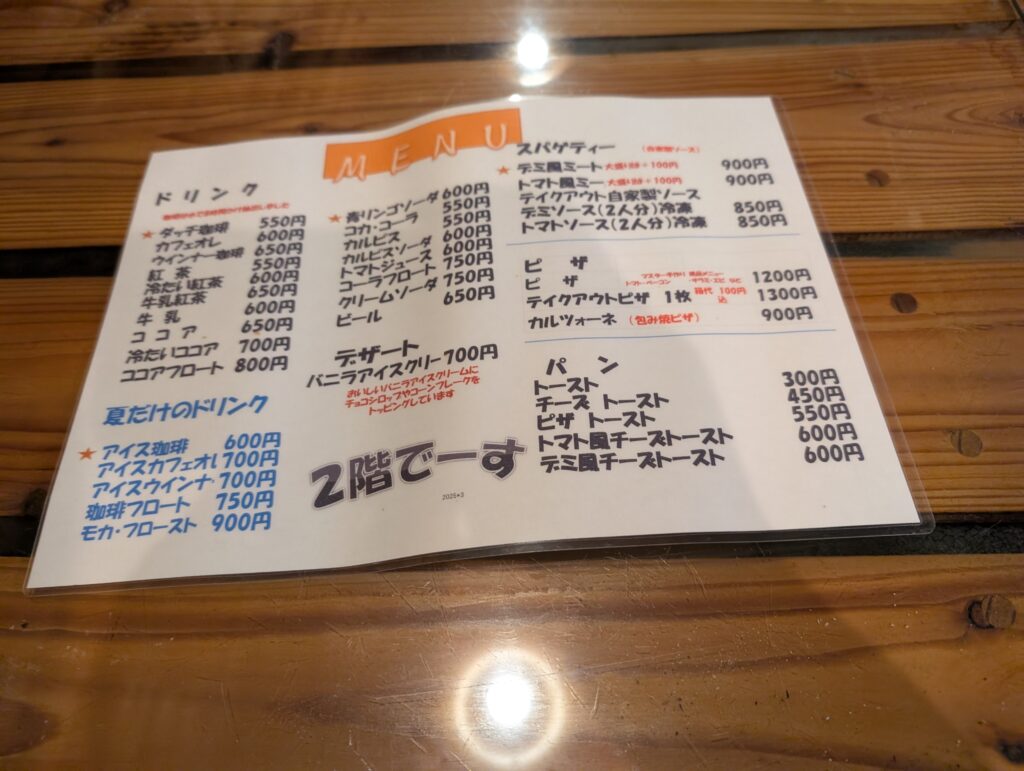 MENU
ドリンク
★ ダッチ珈琲 550円
カフェオレ 600円
ウインナー珈琲 650円
紅茶 550円
冷たい紅茶 600円
牛乳紅茶 650円
牛乳 600円
ココア 650円
冷たいココア 700円
ココアフロート 800円
夏だけのドリンク
★ アイス珈琲 600円
アイスカフェオレ 700円
アイスウインナ 700円
珈琲フロート 750円
モカ・フロースト 900円
★ 青リンゴソーダ 600円
コカ・コーラ 550円
カルピス 550円
カルピスソーダ 600円
トマトジュース 600円
コーラフロート 750円
クリームソーダ 750円
ビール 650円
デザート
バニラアイスクリー 700円
おいしいバニラアイスクリームに
チョコシロップやコーンフレークを
トッピングしています
2階でーす
2025*3
スパゲティー (自家製ソース)
★ デミ風ミート 大盛りは+100円 900円
トマト風ミー 大盛りは+100円 900円
テイクアウト自家製ソース
デミソース(2人分)冷凍 850円
トマトソース(2人分)冷凍 850円
ピザ
マスター手作り 絶品メニュー
ピザ トマト・ベーコン ・サラミ・エビ など 1200円
テイクアウトピザ 1枚 箱代 100円込 1300円
カルツォーネ (包み焼ピザ) 900円
パン
トースト 300円
チーズ トースト 450円
ピザ トースト 550円
トマト風チーズトースト 600円
デミ風チーズトースト 600円